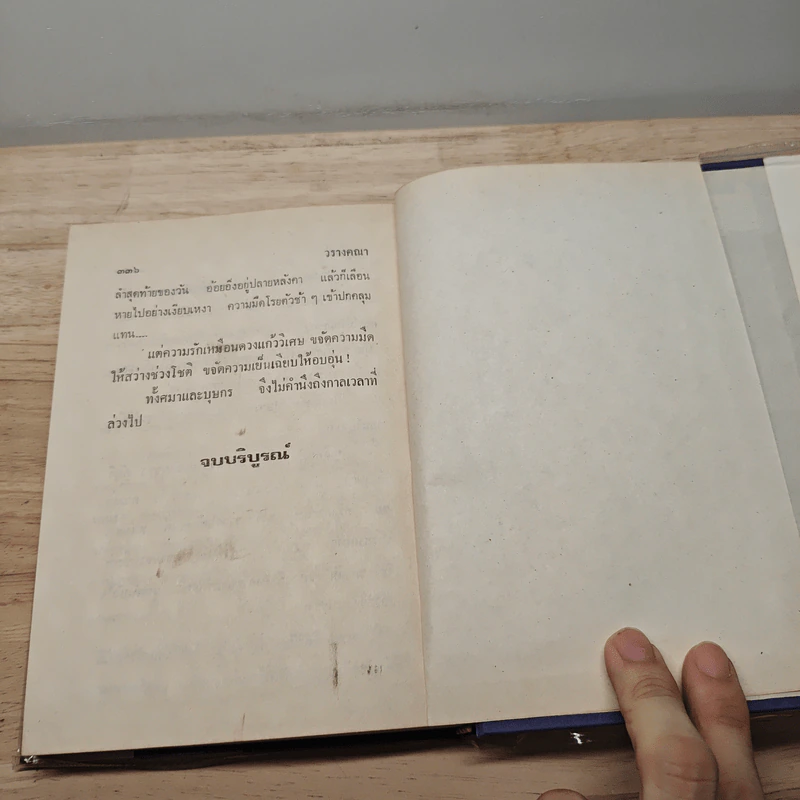 ๓๓๖
วรางคณา
ลำสุดท้ายของวัน อ้อยอิ่งอยู่ปลายหลังคา แล้วก็เลือน
หายไปอย่างเงียบเหงา ความมืดโรยตัวช้า ๆ เข้าปกคลุม
แทน....
แต่ความรักเหมือนดวงแก้ววิเศษ ขจัดความมืด
ให้สว่างช่วงโชติ ขจัดความเย็นเฉียบให้อบอุ่น !
ทั้งศมาและบุษกร จึงไม่คำนึงถึงกาลเวลาที่
ล่วงไป
จบบริบูรณ์